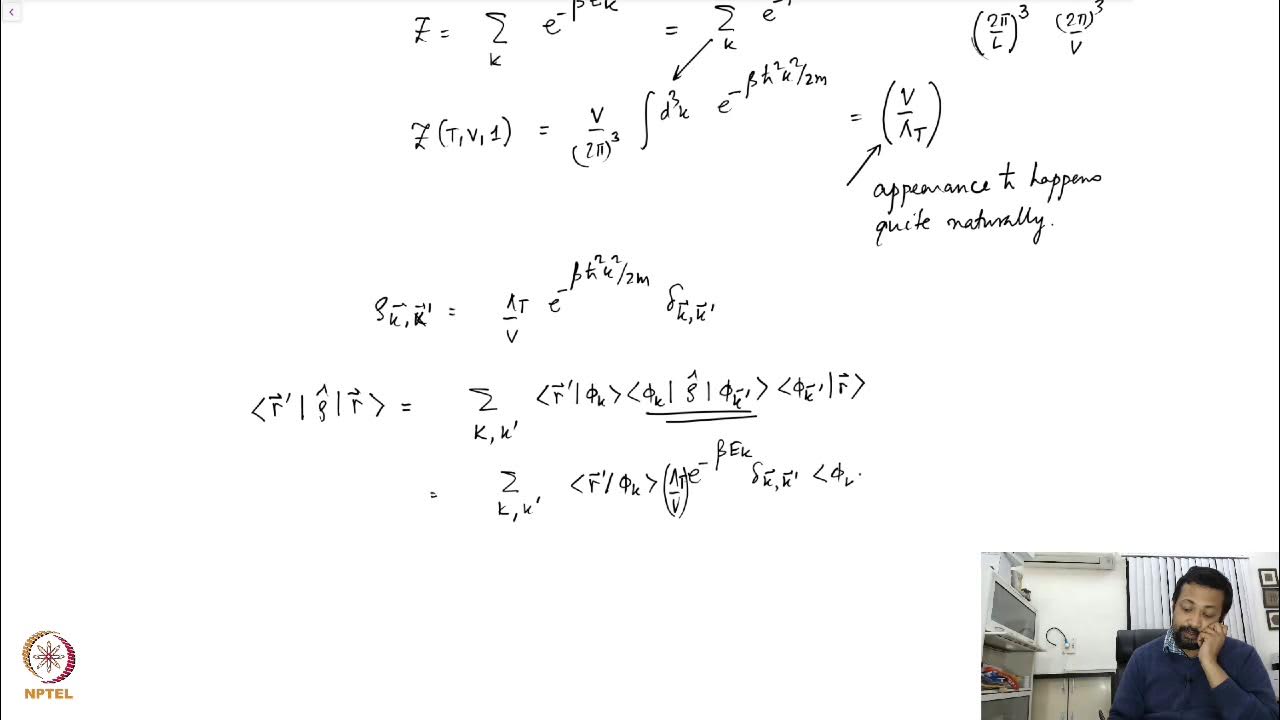 Z = Σ_k e^{-βE_k} = Σ_k e^- (2π/L)^3 (2π)^3/V
Z(T,V,1) = V/(2π)^3 ∫ d^3k e^{-βħ^2k^2/2m} = (V/Λ_T)
appearance ħ happens
quite naturally.
ρ_{k⃗,k⃗'} = Λ_T/V e^{-βħ^2k^2/2m} δ_{k⃗,k⃗'}
<r⃗'|ρ̂|r⃗> = Σ_{k,k'} <r⃗'|ϕ_k><ϕ_k|ρ̂|ϕ_{k⃗'}><ϕ_{k⃗'}|r⃗>
= Σ_{k,k'} <r⃗'|ϕ_k>(Λ_T/V)e^{-βE_k} δ_{k⃗,k⃗'} <ϕ_k
NPTEL